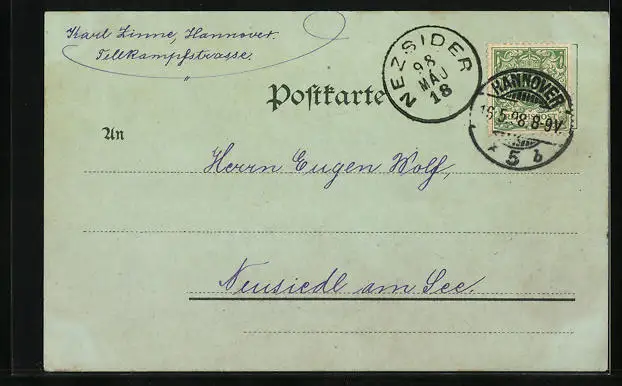 Karl Zinne, Hannover.
Tellkampfstrasse.
NEZSIDER
98
MÁJ
18
HANNOVER
16.5.98.8-9V.
* 5 b
Postkarte
An
Herrn Eugen Wolf,
Neusiedl am See.